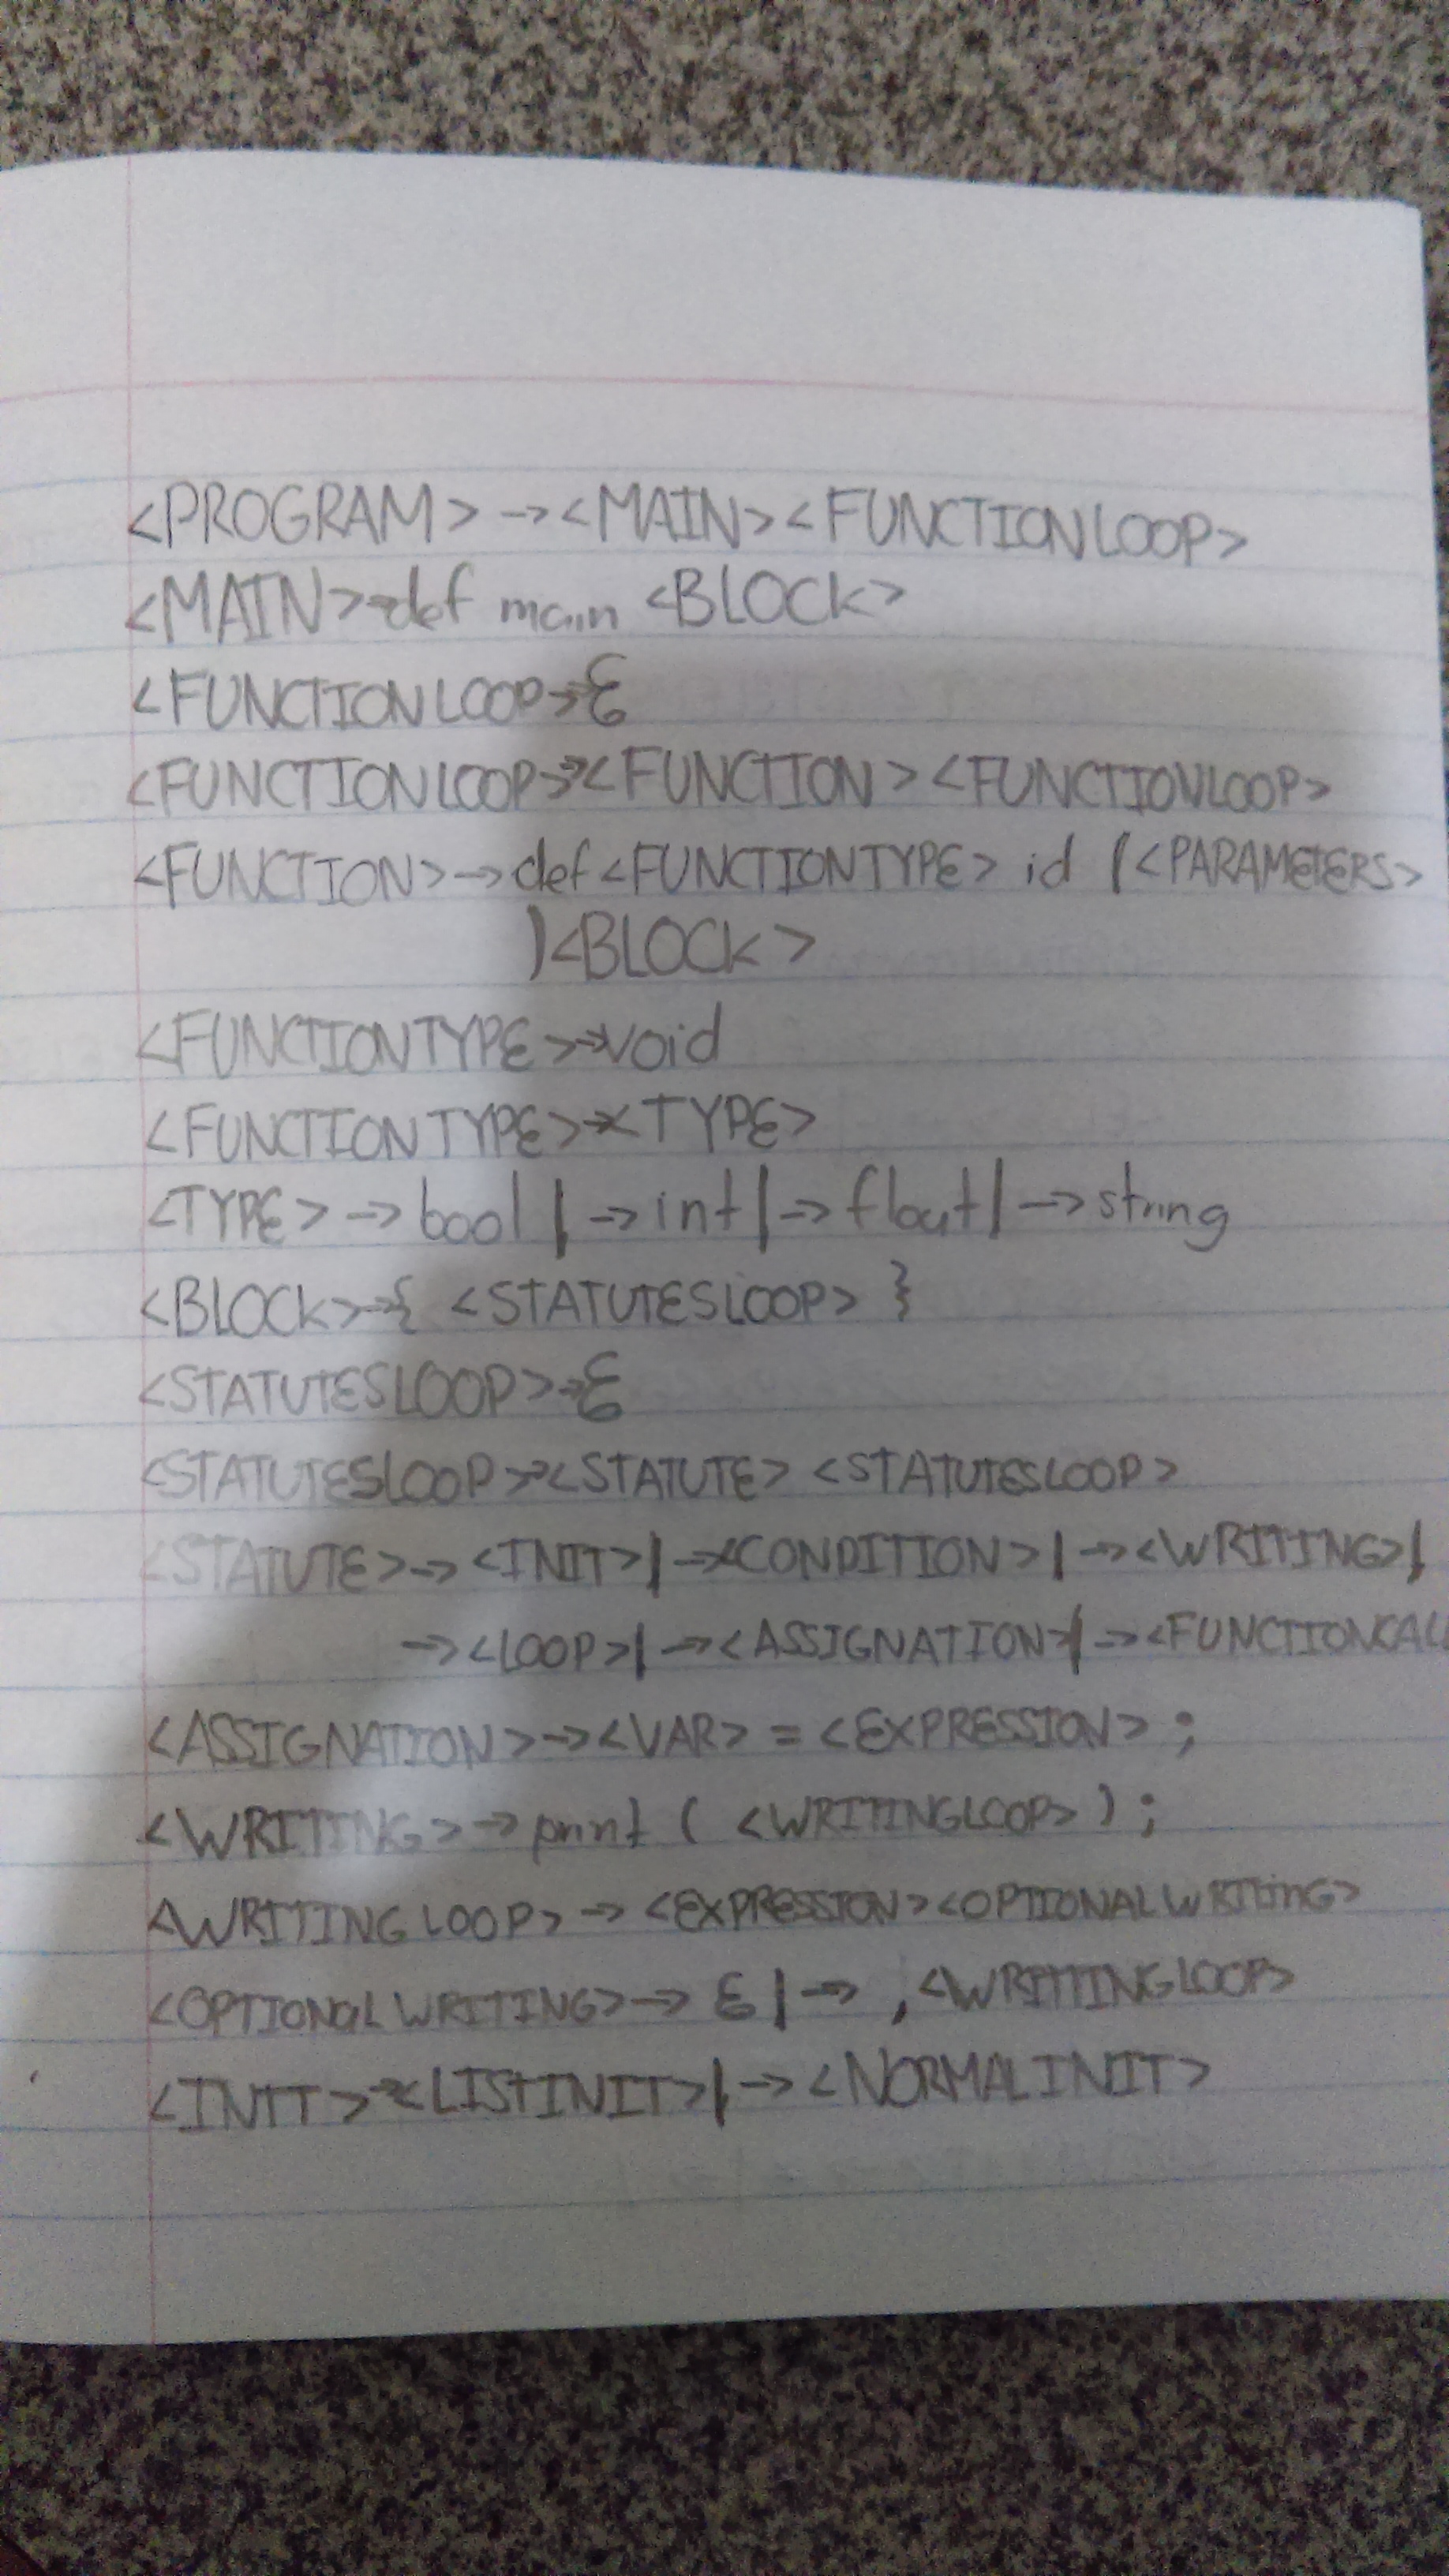 <PROGRAM> → <MAIN> <FUNCTIONLOOP>
<MAIN> → def main <BLOCK>
<FUNCTIONLOOP> → Ɛ
<FUNCTIONLOOP> → <FUNCTION> <FUNCTIONLOOP>
<FUNCTION> → def <FUNCTIONTYPE> id ( <PARAMETERS>
) <BLOCK>
<FUNCTIONTYPE> → void
<FUNCTIONTYPE> → <TYPE>
<TYPE> → bool | → int | → float | → string
<BLOCK> → { <STATUTESLOOP> }
<STATUTESLOOP> → Ɛ
<STATUTESLOOP> → <STATUTE> <STATUTESLOOP>
<STATUTE> → <INIT> | → <CONDITION> | → <WRITING> |
→ <LOOP> | → <ASSIGNATION> | → <FUNCTIONCALL
<ASSIGNATION> → <VAR> = <EXPRESSION> ;
<WRITING> → print ( <WRITINGLOOP> ) ;
<WRITINGLOOP> → <EXPRESSION> <OPTIONALWRITING>
<OPTIONALWRITING> → Ɛ | → , <WRITTINGLOOP>
<INIT> → <LISTINIT> | → <NORMALINIT>